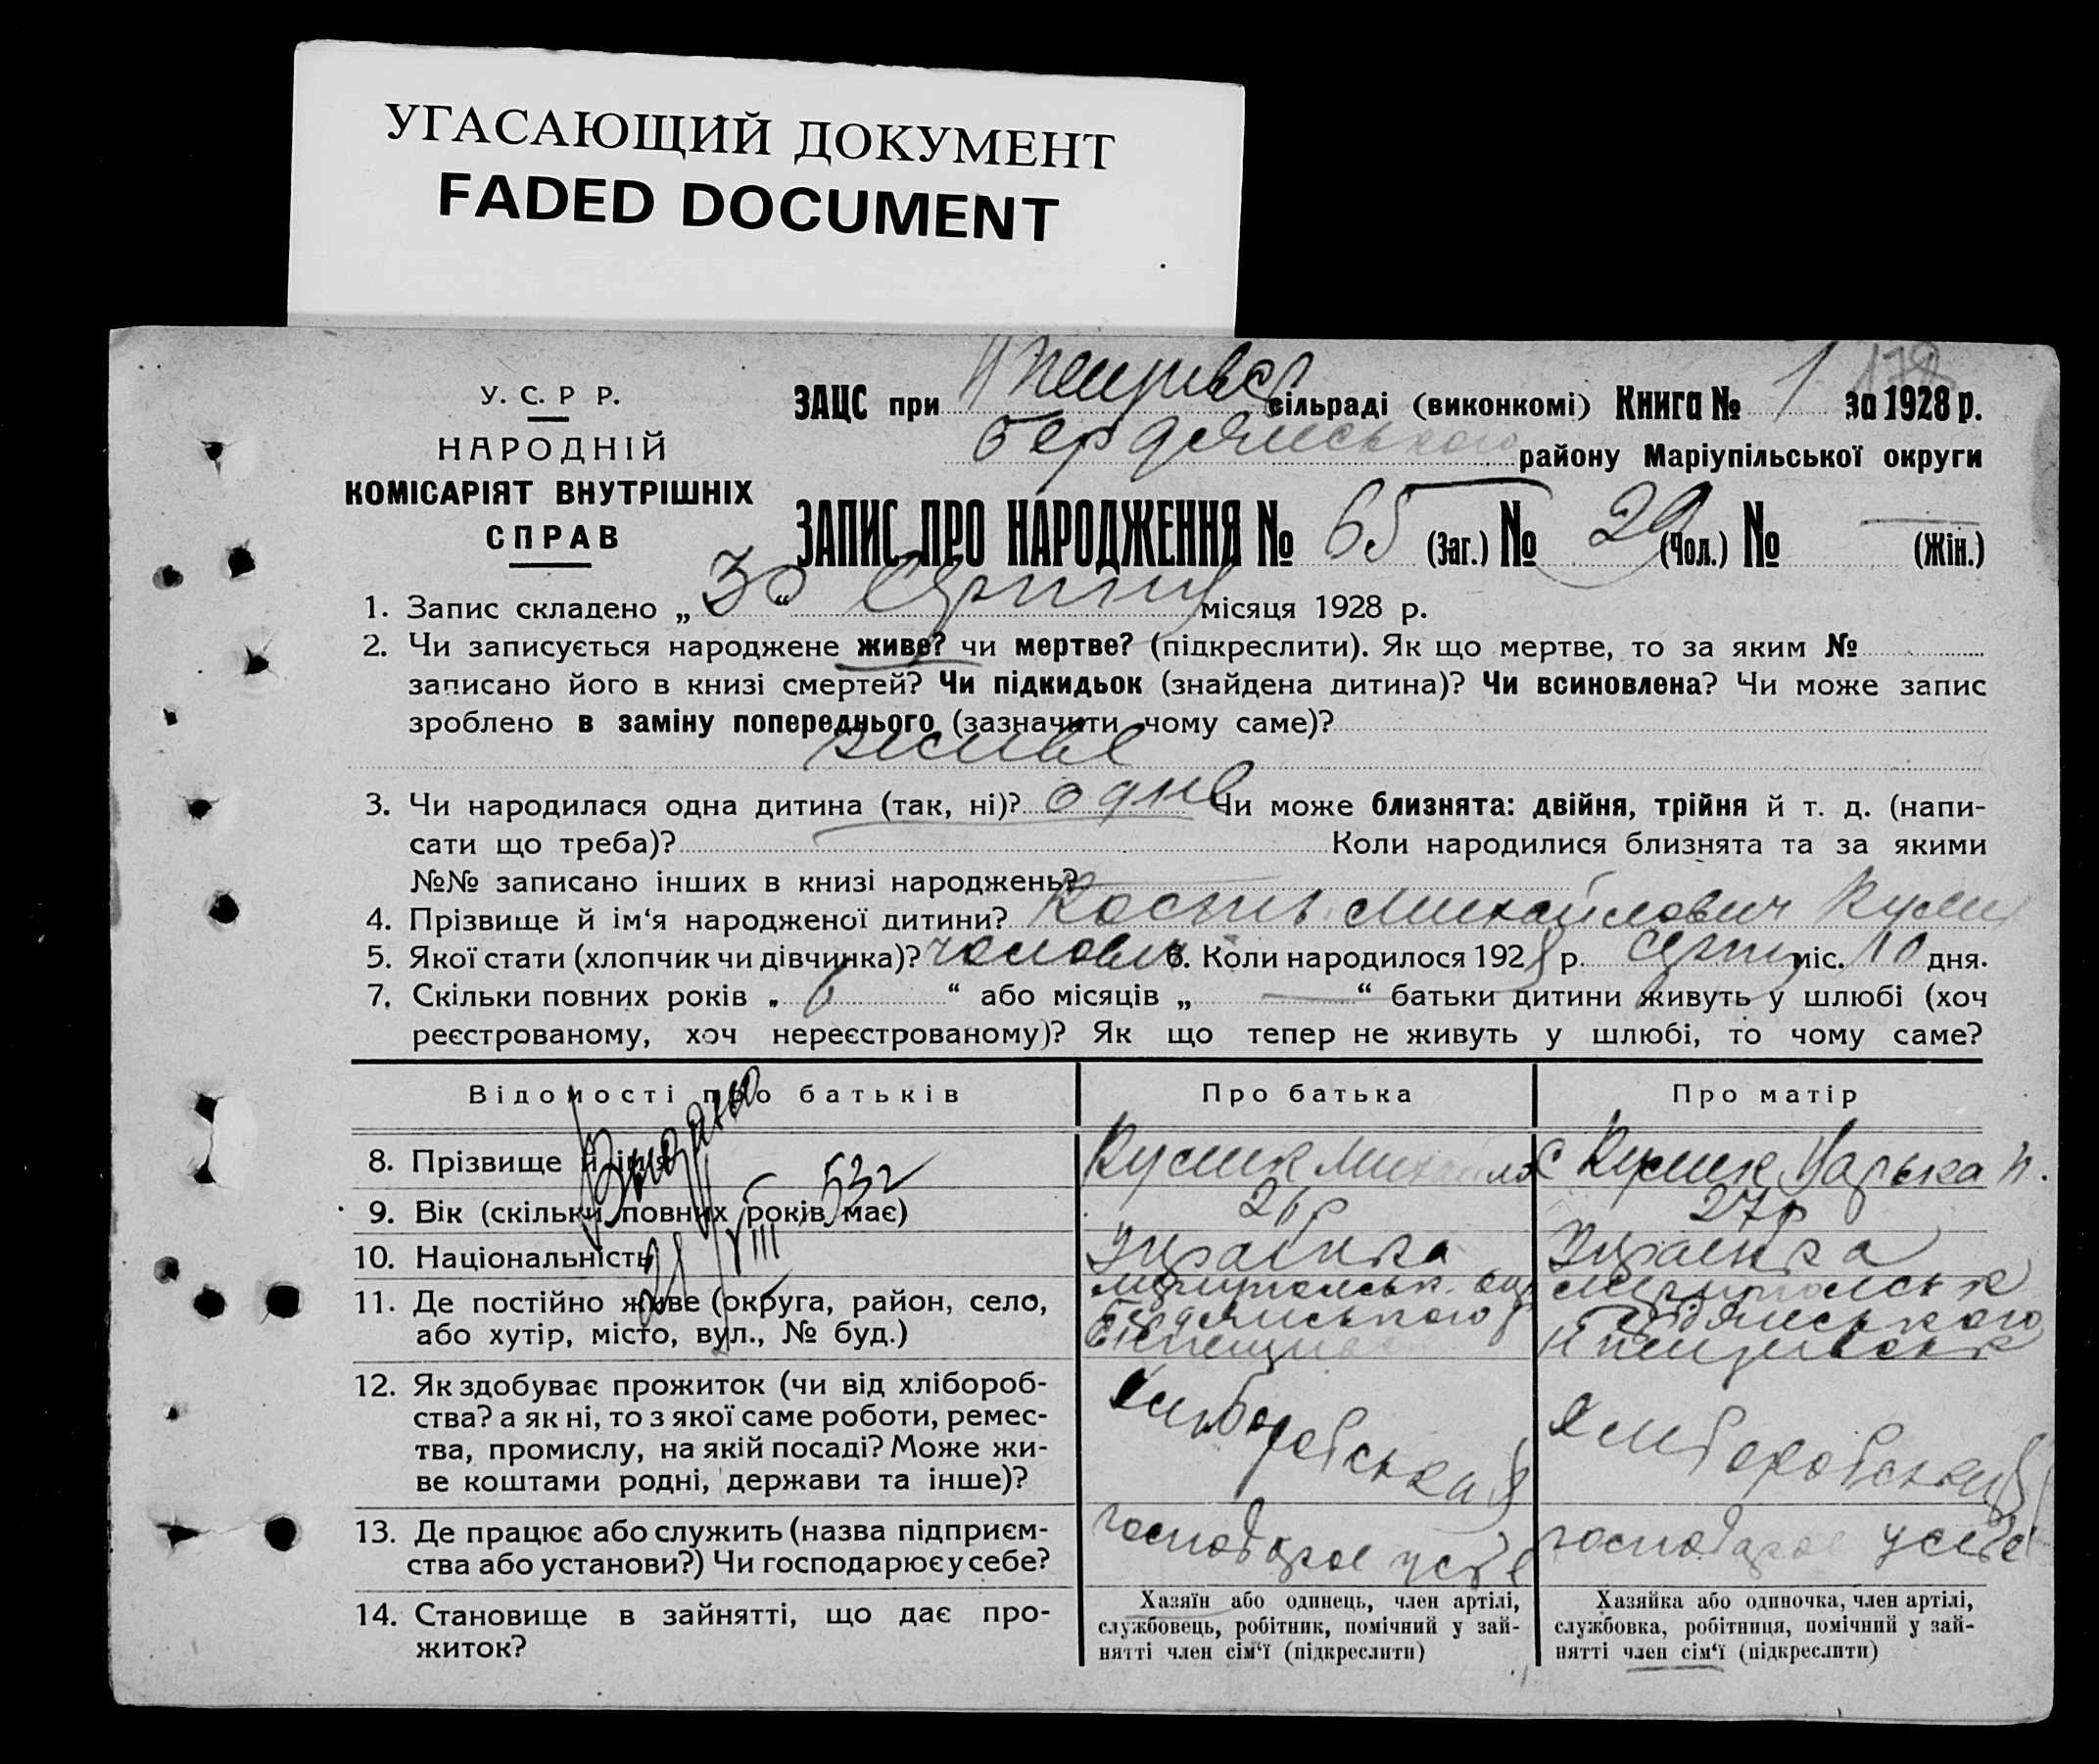 УГАСАЮЩИЙ ДОКУМЕНТ
FADED DOCUMENT
У. С. Р Р.
НАРОДНІЙ
КОМІСАРІЯТ ВНУТРІШНІХ
СПРАВ
ЗАЦС при сільраді (виконкомі) Книга № 1 за 1928 р.
178
Бердянського району Маріупільської округи
ЗАПИС ПРО НАРОДЖЕННЯ № 65 (Заг.) № 29 (Чол.) № — (Жін.)
1. Запис складено „ 30 “ Серпня місяця 1928 р.
2. Чи записується народжене живе? чи мертве? (підкреслити). Як що мертве, то за яким №
записано його в книзі смертей? Чи підкидьок (знайдена дитина)? Чи всиновлена? Чи може запис
зроблено в заміну попереднього (зазначити чому саме)?
живе
3. Чи народилася одна дитина (так, ні)? одне Чи може близнята: двійня, трійня й т. д. (напи-
сати що треба)? Коли народилися близнята та за якими
№№ записано інших в книзі народжень?
4. Прізвище й ім‘я народженої дитини? Кость Михайлович
5. Якої стати (хлопчик чи дівчинка)? 6. Коли народилося 1928 р. серпня міс. 10 дня.
7. Скільки повних років „ 6 “ або місяців „ — “ батьки дитини живуть у шлюбі (хоч
реєстрованому, хоч нереєстрованому)? Як що тепер не живуть у шлюбі, то чому саме?
Відомості про батьків
Про батька
Про матір
8. Прізвище й ім‘я
9. Вік (скільки повних років має)
26 р
27 р
10. Національність
Українка
Українка
11. Де постійно живе (округа, район, село,
або хутір, місто, вул., № буд.)
Бердянського
Бердянського
12. Як здобуває прожиток (чи від хлібороб-
ства? а як ні, то з якої саме роботи, ремес-
тва, промислу, на якій посаді? Може жи-
ве коштами родні, держави та інше)?
13. Де працює або служить (назва підприєм-
ства або установи?) Чи господарює у себе?
господарює у себе
господарює у себе
14. Становище в зайнятті, що дає про-
житок?
Хазяїн або одинець, член артілі,
службовець, робітник, помічний у зай-
нятті член сім‘ї (підкреслити)
Хазяйка або одиночка, член артілі,
службовка, робітниця, помічний у зай-
нятті член сім‘ї (підкреслити)